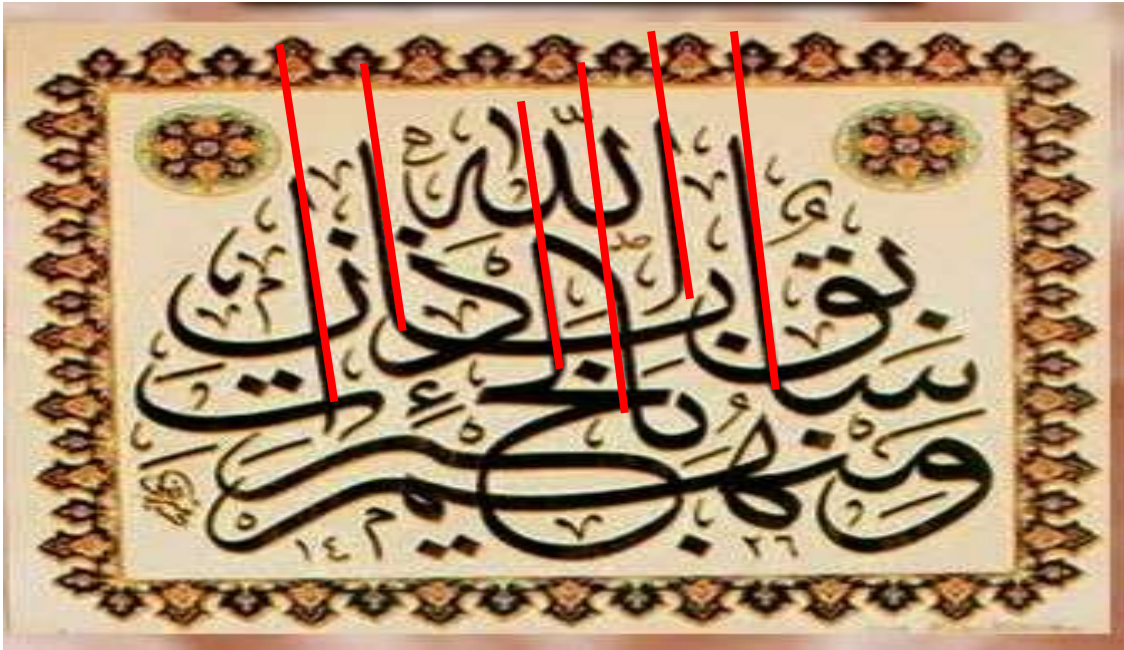 وَمِنْهُمْ سَابِقٌ بِالْخَيْرَاتِ بِإِذْنِ اللَّهِ
١٤٢٦